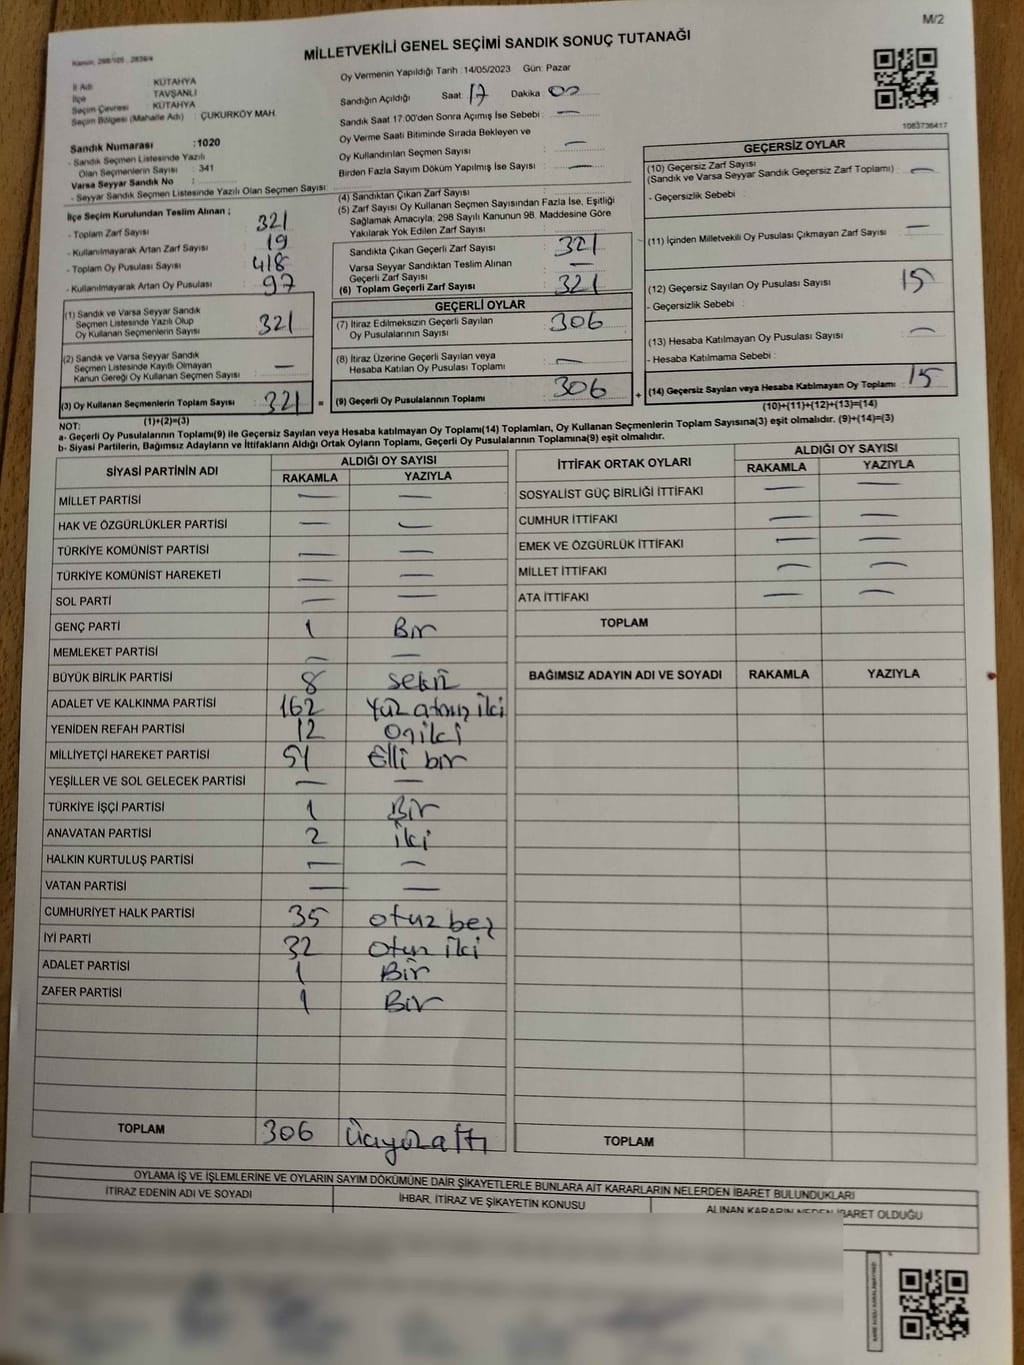 M/2
MİLLETVEKİLİ GENEL SEÇİMİ SANDIK SONUÇ TUTANAĞI
Kanun: 298/105 , 2839/4
İl Adı : KÜTAHYA
İlçe : TAVŞANLI
Seçim Çevresi : KÜTAHYA
Seçim Bölgesi (Mahalle Adı) : ÇUKURKÖY MAH.
Sandık Numarası :1020
- Sandık Seçmen Listesinde Yazılı
Olan Seçmenlerin Sayısı : 341
Varsa Seyyar Sandık No :
- Seyyar Sandık Seçmen Listesinde Yazılı Olan Seçmen Sayısı:
Oy Vermenin Yapıldığı Tarih : 14/05/2023 Gün: Pazar
Sandığın Açıldığı Saat: 17 Dakika : 00
Sandık Saat 17:00'den Sonra Açımış İse Sebebi : —
Oy Verme Saati Bitiminde Sırada Bekleyen ve
Oy Kullandırılan Seçmen Sayısı : —
Birden Fazla Sayım Döküm Yapılmış İse Sayısı : —
1083736417
İlçe Seçim Kurulundan Teslim Alınan ;
- Toplam Zarf Sayısı : 321
- Kullanılmayarak Artan Zarf Sayısı : 19
- Toplam Oy Pusulası Sayısı : 418
- Kullanılmayarak Artan Oy Pusulası : 97
(1) Sandık ve Varsa Seyyar Sandık
Seçmen Listesinde Yazılı Olup
Oy Kullanan Seçmenlerin Sayısı : 321
(2) Sandık ve Varsa Seyyar Sandık
Seçmen Listesinde Kayıtlı Olmayan
Kanun Gereği Oy Kullanan Seçmen Sayısı : —
(3) Oy Kullanan Seçmenlerin Toplam Sayısı : 321 =
(1)+(2)=(3)
(4) Sandıktan Çıkan Zarf Sayısı :
(5) Zarf Sayısı Oy Kullanan Seçmen Sayısından Fazla İse, Eşitliği
Sağlamak Amacıyla; 298 Sayılı Kanunun 98. Maddesine Göre
Yakılarak Yok Edilen Zarf Sayısı :
Sandıkta Çıkan Geçerli Zarf Sayısı : 321
Varsa Seyyar Sandıktan Teslim Alınan
Geçerli Zarf Sayısı : —
(6) Toplam Geçerli Zarf Sayısı : 321
GEÇERLİ OYLAR
(7) İtiraz Edilmeksizin Geçerli Sayılan
Oy Pusulalarının Sayısı : 306
(8) İtiraz Üzerine Geçerli Sayılan veya
Hesaba Katılan Oy Pusulası Toplamı : —
(9) Geçerli Oy Pusulalarının Toplamı : 306 +
GEÇERSİZ OYLAR
(10) Geçersiz Zarf Sayısı
(Sandık ve Varsa Seyyar Sandık Geçersiz Zarf Toplamı) : —
- Geçersizlik Sebebi :
(11) İçinden Milletvekili Oy Pusulası Çıkmayan Zarf Sayısı : —
(12) Geçersiz Sayılan Oy Pusulası Sayısı : 15
- Geçersizlik Sebebi :
(13) Hesaba Katılmayan Oy Pusulası Sayısı : —
- Hesaba Katılmama Sebebi :
(14) Geçersiz Sayılan veya Hesaba Katılmayan Oy Toplamı : 15
(10)+(11)+(12)+(13)=(14)
NOT:
a- Geçerli Oy Pusulalarının Toplamı(9) ile Geçersiz Sayılan veya Hesaba katılmayan Oy Toplamı(14) Toplamları, Oy Kullanan Seçmenlerin Toplam Sayısına(3) eşit olmalıdır. (9)+(14)=(3)
b- Siyasi Partilerin, Bağımsız Adayların ve İttifakların Aldığı Ortak Oyların Toplamı, Geçerli Oy Pusulalarının Toplamına(9) eşit olmalıdır.
SİYASİ PARTİNİN ADI ALDIĞI OY SAYISI
RAKAMLA YAZIYLA
MİLLET PARTİSİ — —
HAK VE ÖZGÜRLÜKLER PARTİSİ — —
TÜRKİYE KOMÜNİST PARTİSİ — —
TÜRKİYE KOMÜNİST HAREKETİ — —
SOL PARTİ — —
GENÇ PARTİ 1 Bir
MEMLEKET PARTİSİ — —
BÜYÜK BİRLİK PARTİSİ 8 sekiz
ADALET VE KALKINMA PARTİSİ 162 Yüz atmış iki
YENİDEN REFAH PARTİSİ 12 On iki
MİLLİYETÇİ HAREKET PARTİSİ 51 Elli bir
YEŞİLLER VE SOL GELECEK PARTİSİ — —
TÜRKİYE İŞÇİ PARTİSİ 1 Bir
ANAVATAN PARTİSİ 2 iki
HALKIN KURTULUŞ PARTİSİ — —
VATAN PARTİSİ — —
CUMHURİYET HALK PARTİSİ 35 otuz beş
İYİ PARTİ 32 Otuz iki
ADALET PARTİSİ 1 Bir
ZAFER PARTİSİ 1 Bir
TOPLAM 306 Üçyüz altı
İTTİFAK ORTAK OYLARI ALDIĞI OY SAYISI
RAKAMLA YAZIYLA
SOSYALİST GÜÇ BİRLİĞİ İTTİFAKI — —
CUMHUR İTTİFAKI — —
EMEK VE ÖZGÜRLÜK İTTİFAKI — —
MİLLET İTTİFAKI — —
ATA İTTİFAKI — —
TOPLAM
BAĞIMSIZ ADAYIN ADI VE SOYADI RAKAMLA YAZIYLA
TOPLAM
OYLAMA İŞ VE İŞLEMLERİNE VE OYLARIN SAYIM DÖKÜMÜNE DAİR ŞİKAYETLERLE BUNLARA AİT KARARLARIN NELERDEN İBARET BULUNDUKLARI
İTİRAZ EDENİN ADI VE SOYADI İHBAR, İTİRAZ VE ŞİKAYETİN KONUSU ALINAN KARARIN NEDEN İBARET OLDUĞU